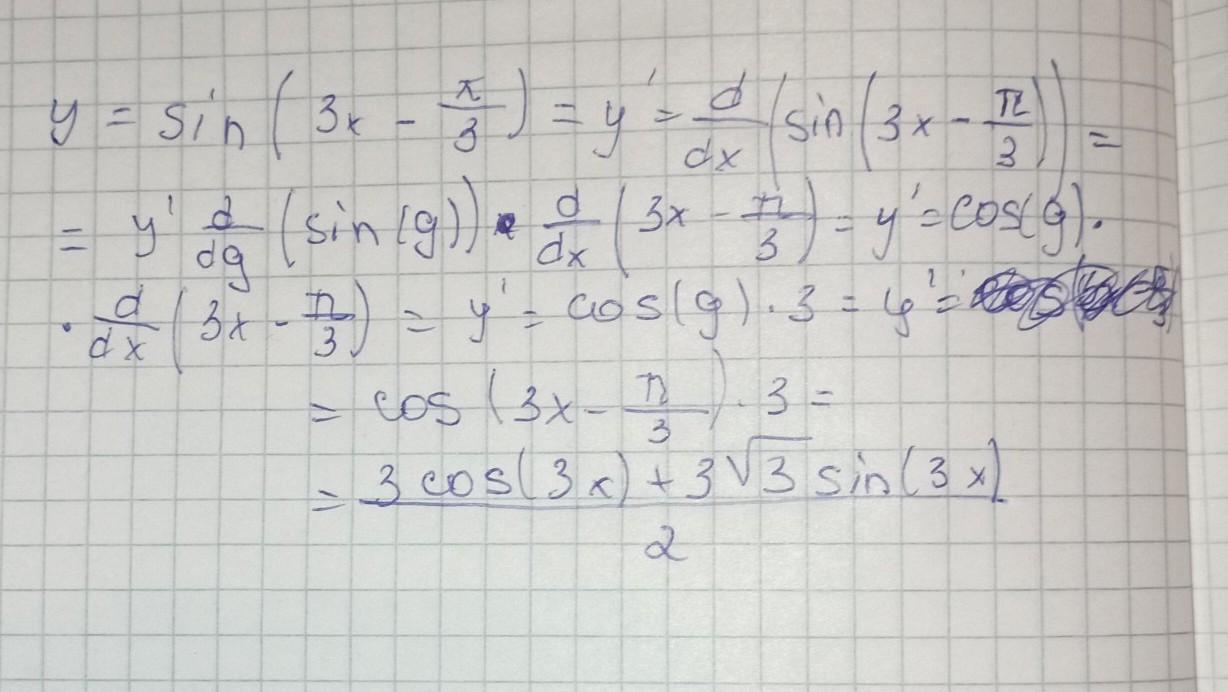 y = sin (3x - π/3) = y' = d/dx (sin (3x - π/3)) =
= y' d/dg (sin(g)) · d/dx (3x - π/3) = y' = cos(g) ·
· d/dx (3x - π/3) = y' = cos(g) · 3 = y' =
= cos (3x - π/3) · 3 =
= 3 cos(3x) + 3√3 sin(3x) / 2